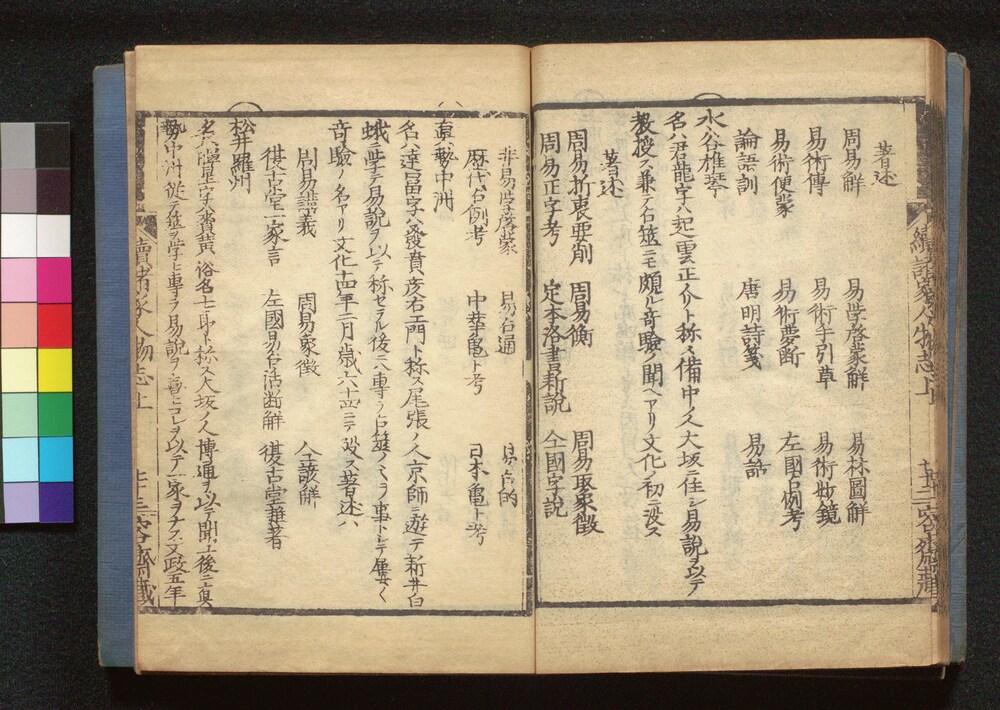 著述
周易解 易學啓蒙解 易林圖解
易術傳 易術手引草 易術妙鏡
易術便蒙 易術夢斷 左國占例考
論語訓 唐明詩箋 易詰
水谷雄琴
名ハ君龍字ハ起雲正介ト称ス備中ノ人大坂ニ住シ易説ヲ以テ
教授ス兼テ占筮ニモ頗ル奇驗ノ聞ヘアリ文化ノ初ニ没ス
著述
周易折衷要削 周易衡 周易取象徴
周易正字考 定本洛書新説 仝國字説
續諸家人物志上
非易學啓蒙 易占通 易占的
歴代占例考 中華亀卜考 日本亀卜考
真勢中洲
名ハ達富字ハ發貴彦右エ門ト称ス尾張ノ人京師ニ遊テ新井白
蛾ニ學テ易説ヲ以テ称セラル後ニハ専ラ占筮ノミヲ事トシテ屢々
奇驗ノ名アリ文化十四年二月歳六十四ニテ没ス著述ハ
周易講義 周易象徴 仝該解
復古堂一家言 左國易占活断解 復古堂雜著
松井羅州
俗名七郎ト称ス大坂ノ人博通ヲ以テ聞ユ後ニ真
勢中洲ニ從テ筮ヲ学ヒ專ラ易説ヲ コレヲ以テ一家ヲナス文政五年
續諸家人物志上